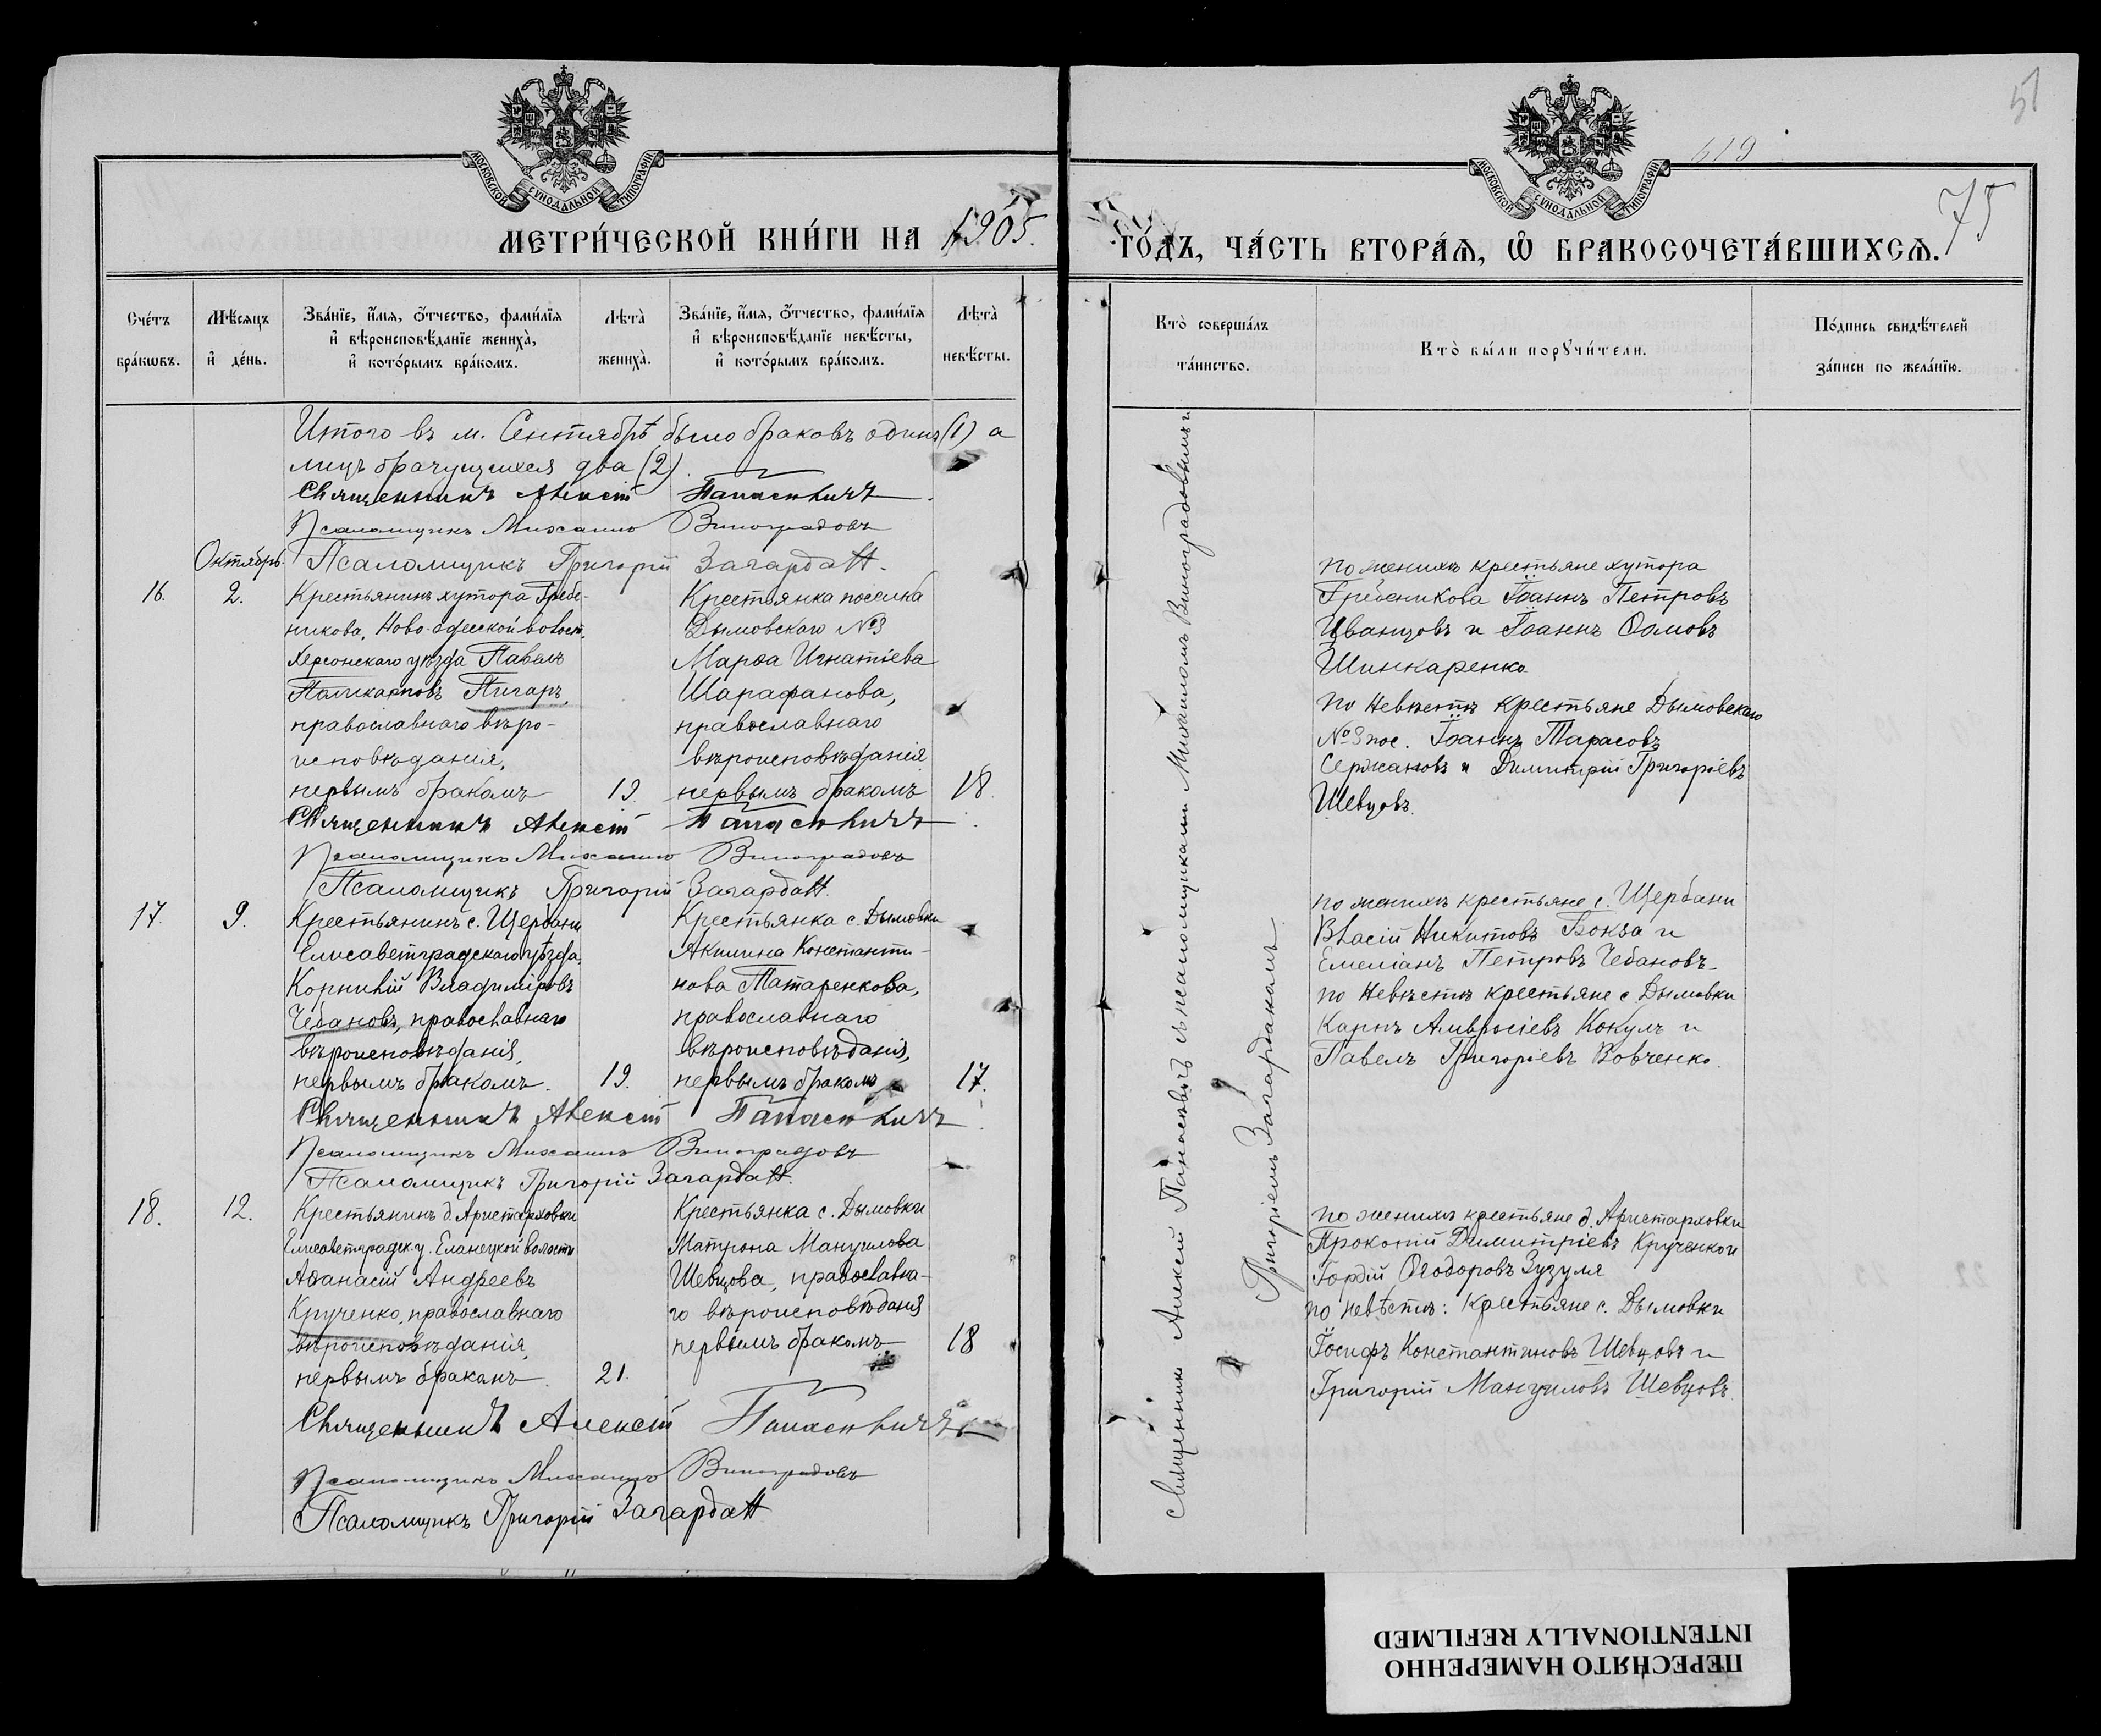 МОСКОВСКОЙ СѴНОДАЛЬНОЙ ТИПОГРАФІИ
МЕТРИ́ЧЕСКОЙ КНИ́ГИ НА 1905.
Сче́тъ бра́кѡвъ.
Мѣ́сяцъ и҆ де́нь.
Зва́нїе, и҆́мя, ѻ҆́тчество, фами́лїя и҆ вѣроисповѣ́данїе жениха̀, и҆ кото́рымъ бра́комъ.
Лѣта̀ жениха̀.
Зва́нїе, и҆́мя, ѻ҆́тчество, фами́лїя и҆ вѣроисповѣ́данїе невѣ́сты, и҆ кото́рымъ бра́комъ.
Лѣта̀ невѣ́сты.
Итого въ м. Сентябрѣ было браковъ одинъ (1) а
лицъ брачущихся два (2).
Священникъ Алексій Панасевичъ
Псаломщикъ Михаилъ Виноградовъ
Октябрь.
Псаломщикъ Григорій Загардан.
16.
2.
Крестьянинъ хутора Гребе-
никова, Ново-одесской волост.
Херсонскаго уѣзда Павелъ
Поликарповъ Пигаръ,
православнаго вѣро-
исповѣданія,
первымъ бракомъ
19.
Крестьянка поселка
Дымовскаго №3
Марѳа Игнатіева
Шарафанова,
православнаго
вѣроисповѣданія
первымъ бракомъ
18.
Священникъ Алексій Панасевичъ
Псаломщикъ Михаилъ Виноградовъ
Псаломщикъ Григорій Загардан.
17.
9.
Крестьянинъ с. Щербани
Елисаветградскаго уѣзда,
Корнилій Владиміровъ
Чебановъ, православнаго
вѣроисповѣданія,
первымъ бракомъ.
19.
Крестьянка с. Дымовки
Акилина Константи-
нова Татаренкова,
православнаго
вѣроисповѣданія,
первымъ бракомъ
17.
Священникъ Алексій Панасевичъ
Псаломщикъ Михаилъ Виноградовъ
Псаломщикъ Григорій Загардан.
18.
12.
Крестьянинъ д. Аристарховки
Елисаветградск. у. Еланецкой волости
Аѳанасій Андреевъ
Крученко, православнаго
вѣроисповѣданія,
первымъ бракомъ.
21.
Крестьянка с. Дымовки
Матрона Мануилова
Шевцова, православна-
го вѣроисповѣданія
первымъ бракомъ
18
Священникъ Алексій Панасевичъ
Псаломщикъ Михаилъ Виноградовъ
Псаломщикъ Григорій Загардан
51
619
75
МОСКОВСКОЙ СѴНОДАЛЬНОЙ ТИПОГРАФІИ
ГО́ДЪ, ЧА́СТЬ ВТОРА́Я, Ѡ҆ БРАКОСОЧЕТА́ВШИХСЯ.
Кто̀ соверша́лъ та́инство.
Кто̀ бы́ли порꙋчи́тели.
По́дпись свидѣ́телей за́писи по жела́нїю.
Священник Алексій Панасевичъ съ псаломщиками Михаиломъ Виноградовымъ и
Григоріемъ Загарданомъ
по женихѣ крестьяне хутора
Гребеникова Іоаннъ Петровъ
Цванцовъ и Іоаннъ Ѳомовъ
Шинкаренко
по невѣстѣ крестьяне Дымовскаго
№3 пос. Іоаннъ Тарасовъ
Сержановъ и Димитрій Григоріевъ
Шевцовъ.
по женихѣ крестьяне с. Щербани
Власій Никитовъ Бокза и
Емеліанъ Петровъ Чебановъ
по невѣстѣ крестьяне с Дымовки
Карпъ Амвросіевъ Кокулъ и
Павелъ Григоріевъ Вовченко.
по женихѣ крестьяне д. Аристарховки
Прокопій Димитріевъ Крученко и
Гордій Ѳеодоровъ Зузуля
по невѣстѣ: крестьяне с. Дымовки
Іосифъ Константиновъ Шевцовъ и
Григорій Мануиловъ Шевцовъ.
ПЕРЕСНЯТО НАМЕРЕННО
INTENTIONALLY REFILMED